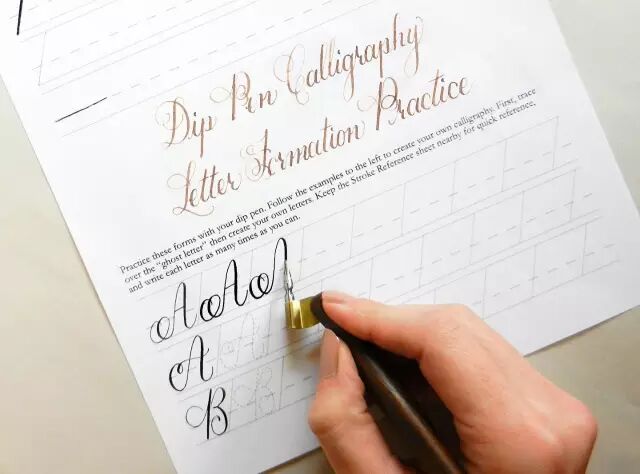 Dip Pen Calligraphy
Letter Formation Practice
Practice these forms with your dip pen. Follow the examples to the left to create your own calligraphy. First, trace
over the “ghost letter” then create your own letters. Keep the Stroke Reference sheet nearby for quick reference,
and write each letter as many times as you can.
A A A
A A A
B B B